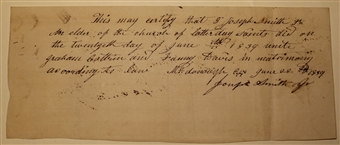 This may certify that I Joseph Smith Jr
An elder, of the church of Latter day Saints did on
the twentyeth day of June 1839 unite
graham Coltrin and Fanny Davis in matrimony
according to law June 20th 1839
Joseph Smith Jr